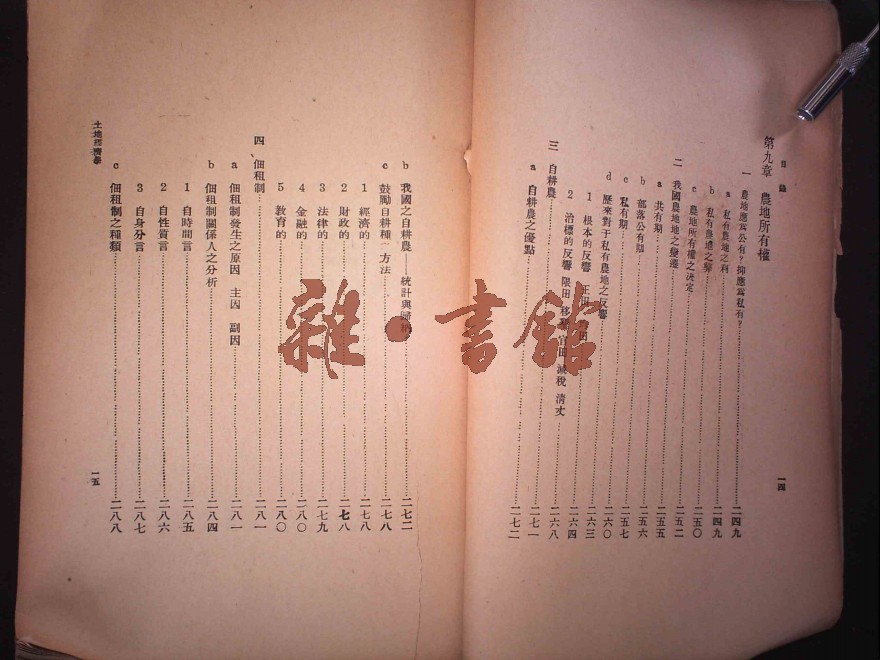 目錄
第九章 農地所有權
一 農地應爲公有?抑應爲私有?……二四九
a 私有農地之利……二四九
b 私有農地之弊……二四九
c 農地所有權之決定……二五〇
二 我國農地地之變遷……二五二
a 共有期……二五五
b 部落公有期……二五六
c 私有期……二五七
d 歷來對于私有農地之反響……二六〇
1 根本的反響 王田 均田……二六三
2 治標的反響 限田 移 官田 減稅 清丈……二六四
三 自耕農……二六八
a 自耕農之優點……二七一
二七二
一四
b 我國之自耕農 統計與歸納……二七二
c 鼓勵自耕種方法……二七八
1 經濟的……二七八
2 財政的……二七八
3 法律的……二七九
4 金融的……二八〇
5 教育的……二八〇
四 佃租制……二八一
a 佃租制發生之原因 主因 副因……二八一
b 佃租制關係人之分析……二八四
1 自時間言……二八五
2 自性質言……二八六
3 自身分言……二八七
c 佃租制之種類……二八八
土地經濟學
一五
雜·書館